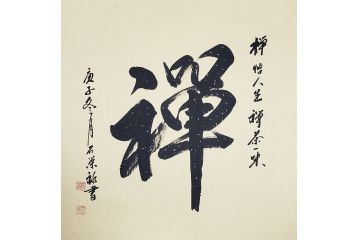 禪悟人生禪茶一味
禪
庚子冬月石荣書